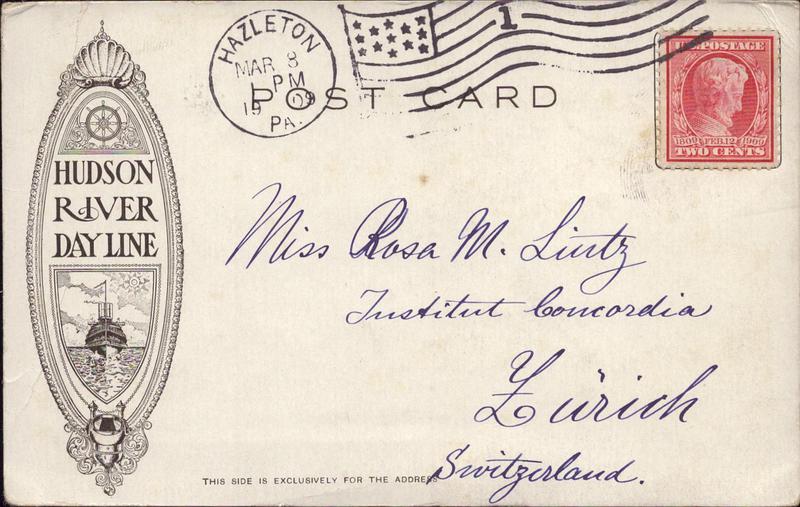 HAZLETON
MAR 8
1 PM
1909
PA.
1
POST CARD
U.S. POSTAGE
1809 FEB. 12 1909
TWO CENTS
HUDSON
RIVER
DAY LINE
Miss Rosa M. Lintz
Institut Concordia
Zürich
Switzerland.
THIS SIDE IS EXCLUSIVELY FOR THE ADDRESS